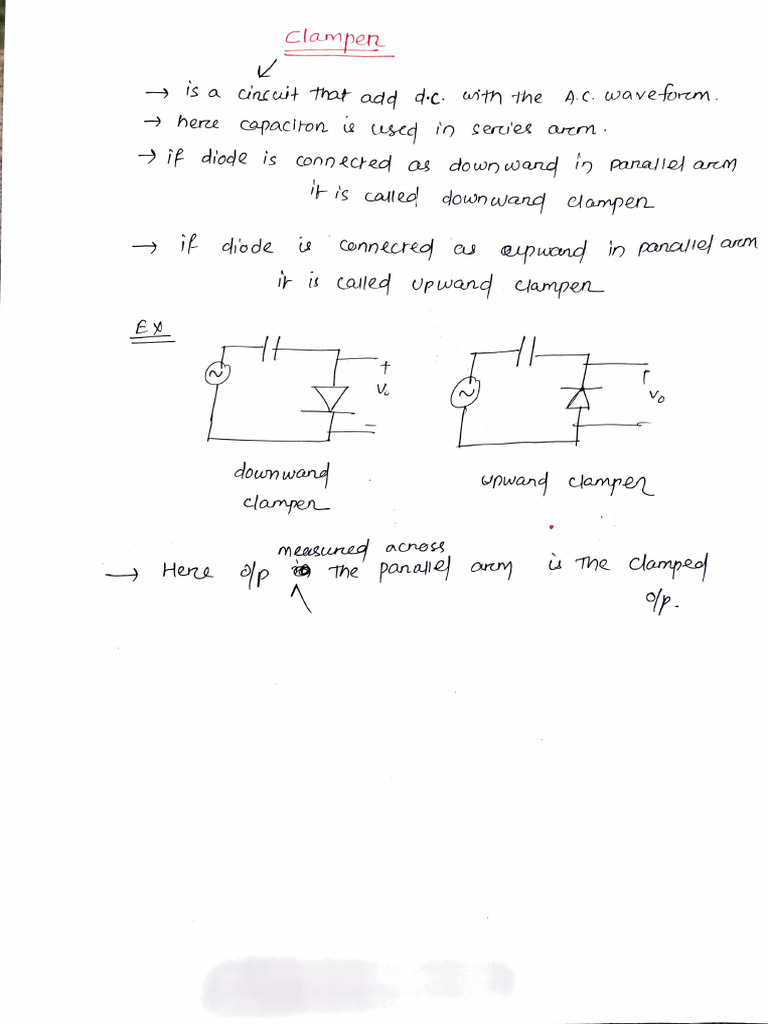 Clamper
→ is a circuit that add d.c. with the A.C. waveform.
→ here capacitor is used in series arm.
→ if diode is connected as downward in parallel arm
it is called downward clamper
→ if diode is connected as upward in parallel arm
it is called upward clamper
EX
+
~
Vo
~
Vo
downward
clamper
upward clamper
measured across
→ Here o/p the parallel arm is the clamped
o/p.